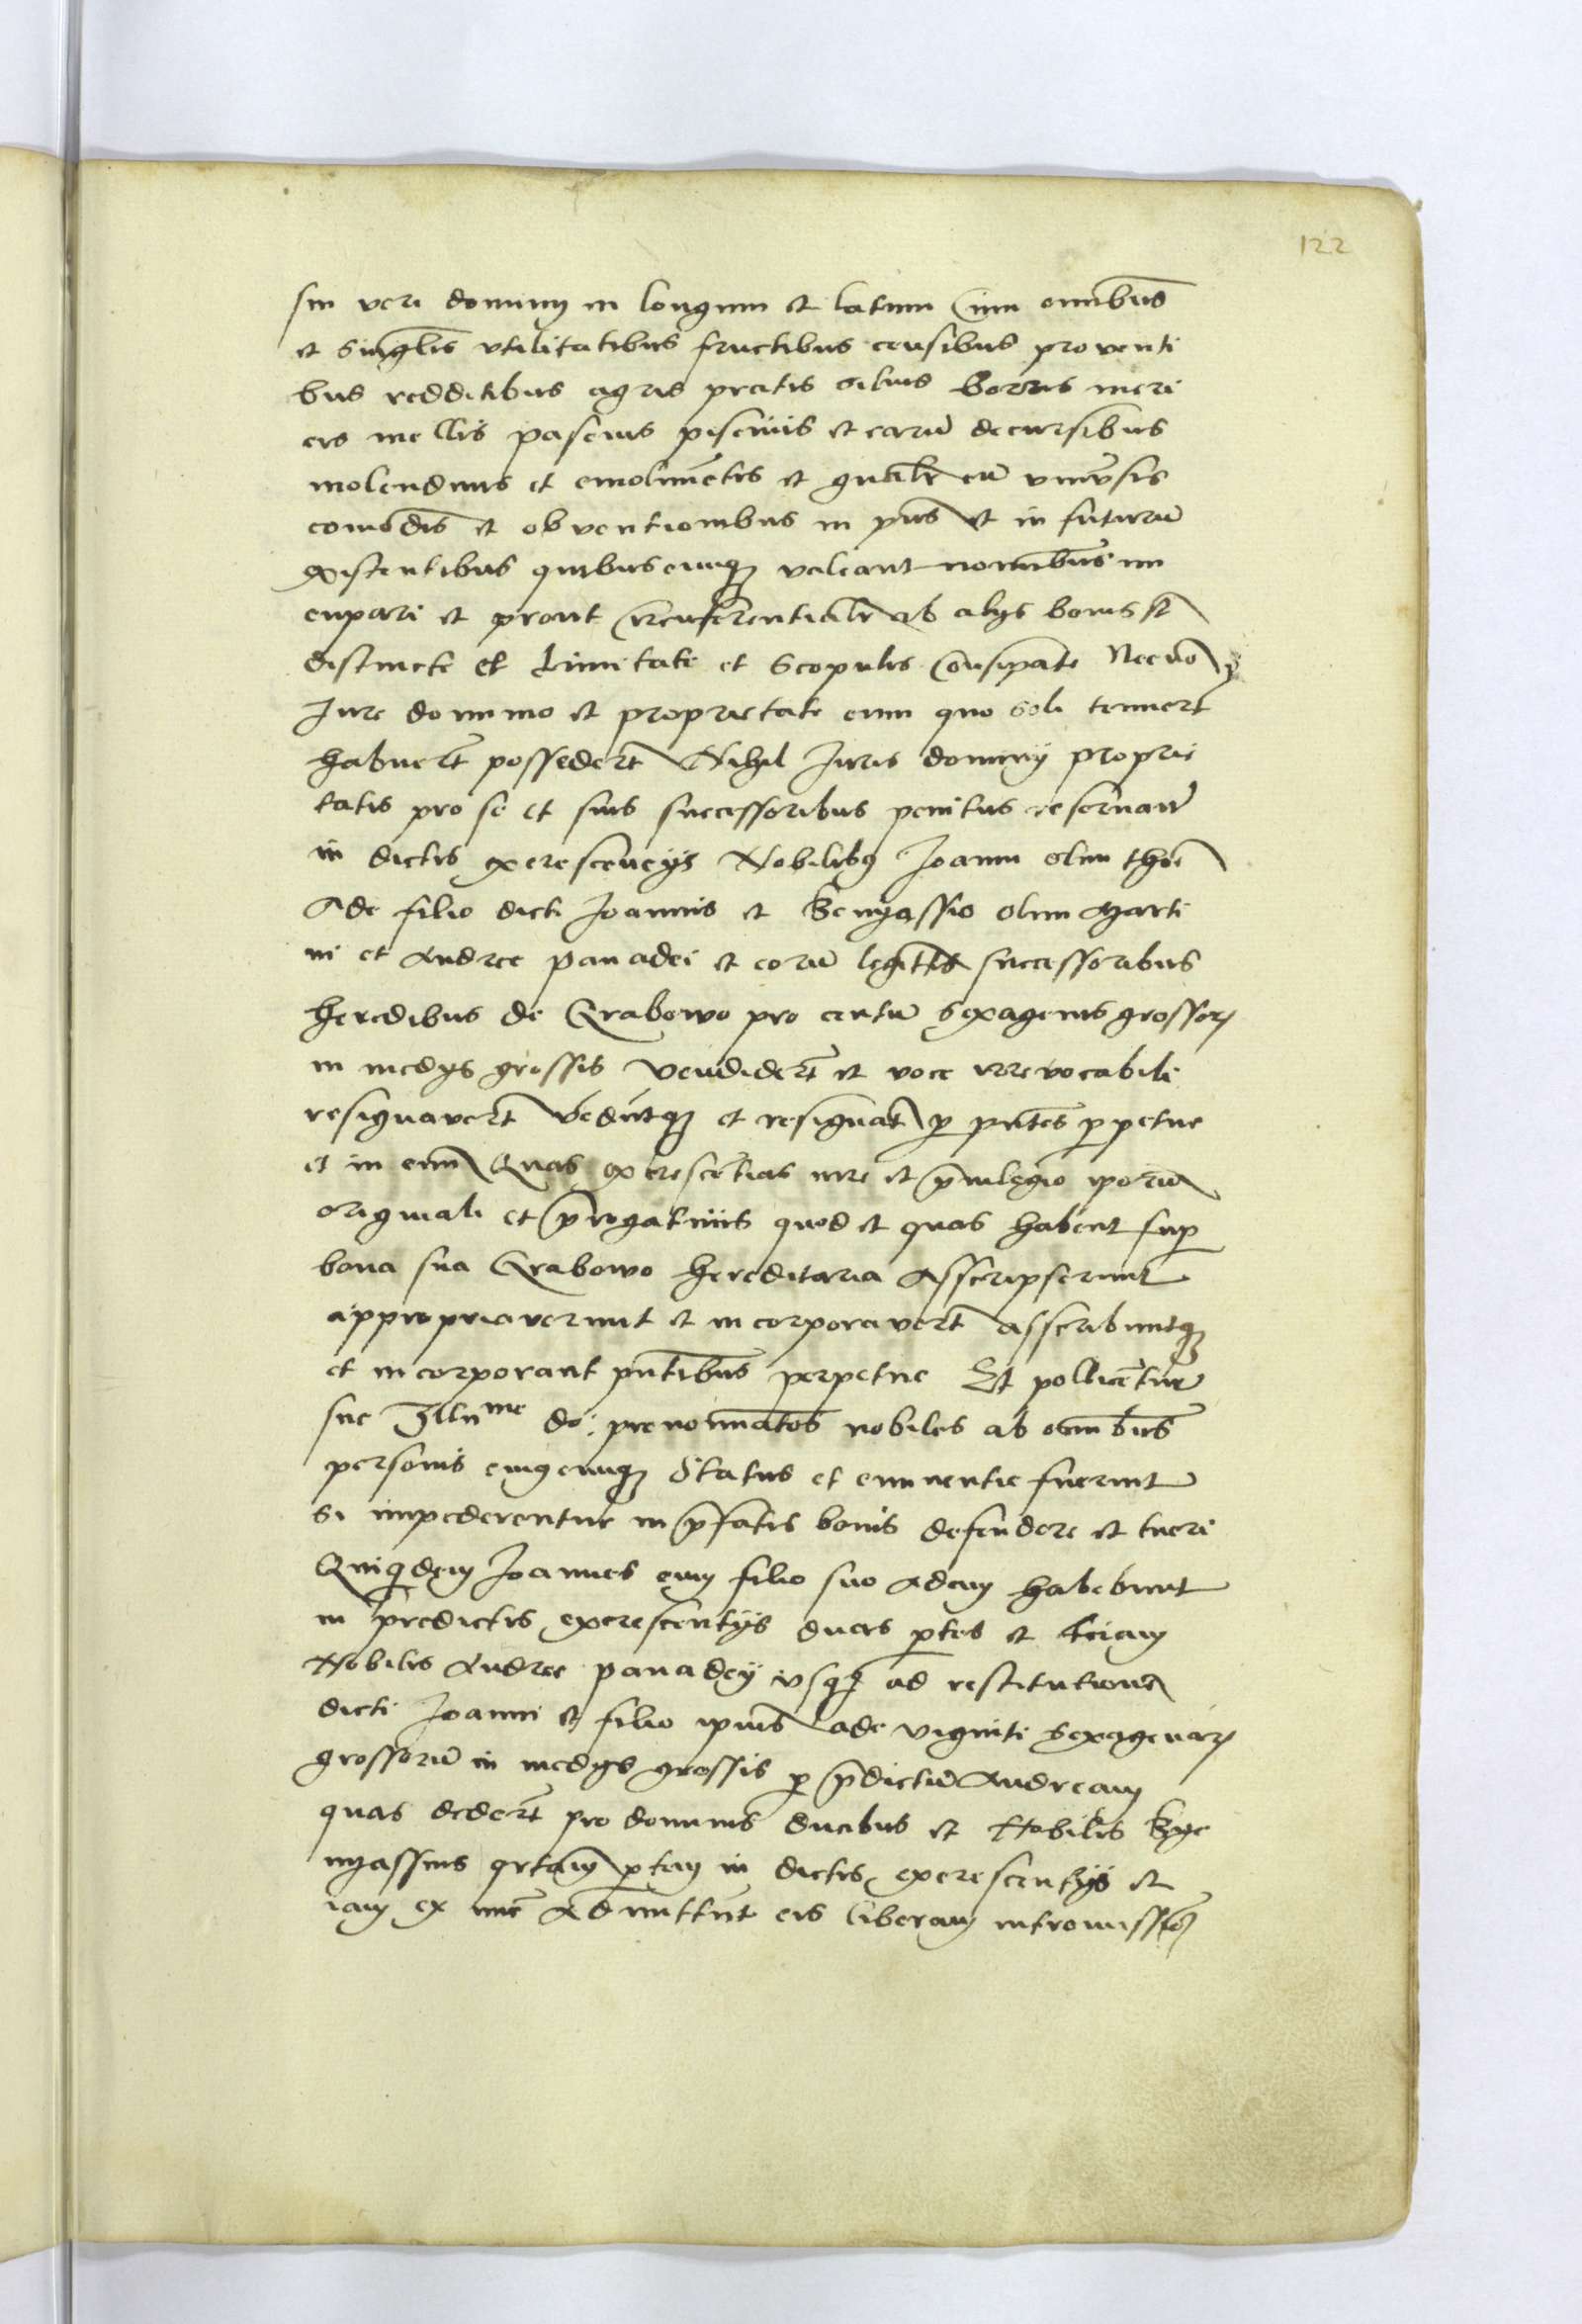 122
sui veri dominij in longum et latum Cum omnibus
et singlis vtilitatibus fructibus censibus proventi
bus redditibus agris pratis siluis borris meri
cis mellis pascuis piscinis et earū decursibus
molendinis et emolimētis et gnalr cū vniūsis
comodis et obventionibus in pn̄s et in futurū
existentibus quibuscunq valeant nominibus nu
cupari et prout circumferentialr ab alijs bonis st
distincte et limitate et scopulis consipate Necnō
Jure dominio et proprietate cum quo soli tenuert
habuert possedert Nihil Juris dominij proprie
tatis pro se et suis successoribus penitus reseruan̄
in dictis excrescencijs Nobilibq Joanni olim thoe
Ade filio dicti Joannis et Bernassio olim Marti
ni et Andree panadei et eorū legittis successoribus
heredibus de Grabowo pro centū sexagenis grossorz
in medys grossis vendidert et voce irrevocabili
resignavert vēdūtq et resignāt p pn̄tes ppetue
et in eum Quas excrescētias iure et p̄uilegio ipōrū
originali et p̄rogatiuis quod et quas habent sup
bona sua Grabowo hereditaria Asscripserunt
appropriaverunt et incorporavert asscribuntq
et incorporant pn̄tibus perpetue Et pollicētur
sue Illume do: prenominatos nobiles ab omnibus
personis cuiuscunq status et eminentie fuerint
si impederentur in p̄fatis bonis defendere et tueri
Quiqdem Joannes cum filio suo Adam habebunt
in predictis excrescentijs duas ptes et terciam
Nobilis Andree panadey vsqq ad restitutionē
dicti Joanni et filio ipius ade viginti sexagenarz
grossorū in medys grossis p p̄dictū Andream
quas dedert pro dominis ducibus et Nobilis Bye
nyassius qrtam ptem in dictis excrescentijs et
iam ex nūc Admittūt eis liberam intromissioē